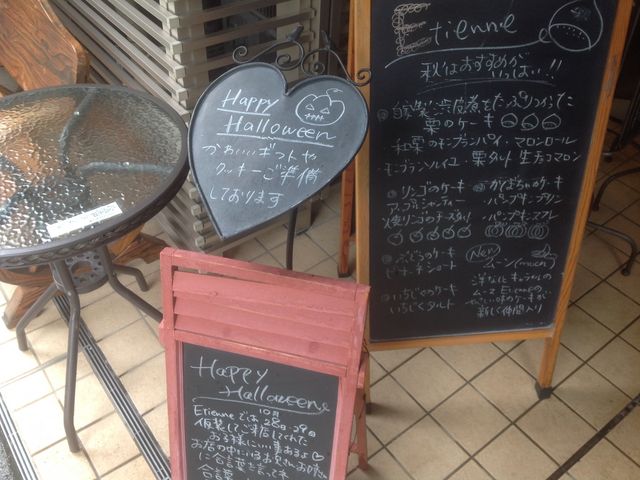 Etienne
秋はおすすめが
いっぱい!!
自家製渋皮煮をたっぷりつかった
栗のケーキ
和栗のモンブランパイ・マロンロール
モンブランルイユ・栗タルト 生チョコマロン
リンゴのケーキ
かぼちゃのケーキ
アップルシャンティー
パンプキンプリン
焼リンゴのチーズタルト
パンプキンサブレ
ぶどうのケーキ
ピオーネショート
New
ムーン(moon)
洋なしとキャラメルの
ムース Etienneの
やさしい味のケーキが
新しく仲間入り
いちじくのケーキ
いちじくタルト
Happy
Halloween
かわいいギフトや
クッキーご準備
しております
Happy
Halloween
Etienneでは10月28日・29日
仮装してご来店してくれた
お子様にいい事あるよ♡
お店の中にいるお兄さんお姉さん
に合言葉を言ってネ
合言葉